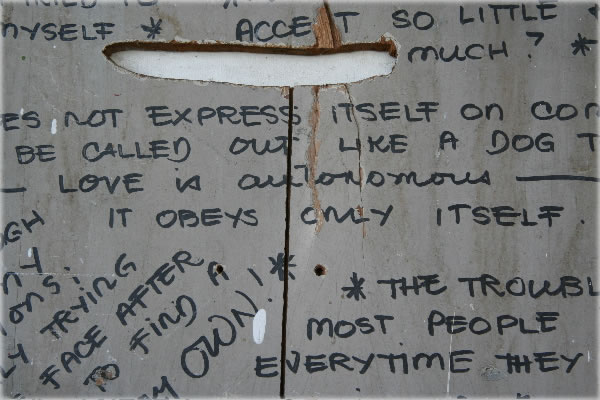 MYSELF * ACCEPT SO LITTLE
MUCH? *
NOT EXPRESS ITSELF ON
BE CALLED OUT LIKE A DOG
— LOVE is autonomous —
IT OBEYS ONLY ITSELF.
TRYING
FACE AFTER
TO FIND A
OWN! *
* THE
MOST PEOPLE
EVERYTIME THEY